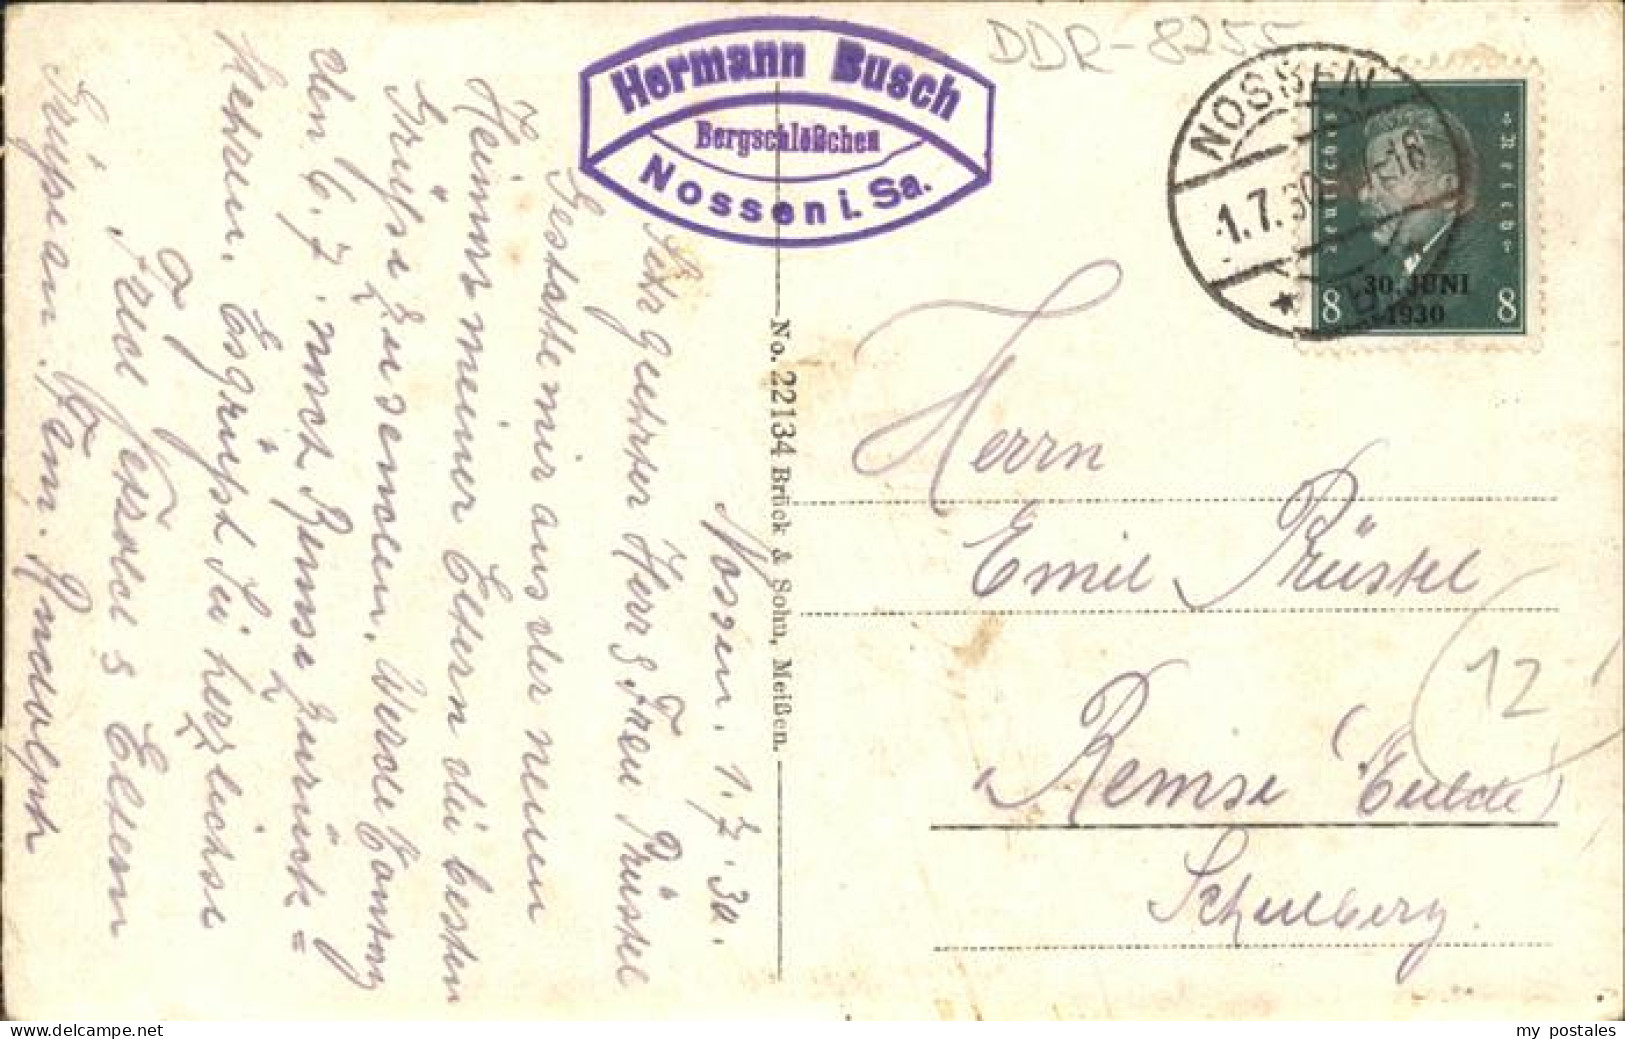 DDR-8255
Hermann Busch
Bergschlößchen
Nossen i. Sa.
NOSSEN
-1.7.30
Deutsches Reich
30. JUNI
1930
8 8
Nossen. 1.7.30.
Sehr geehrter Herr & Frau Prüstel
Gestatte mir aus der neuen
Heimat meiner Eltern die besten
Grüße zu senden. Werde Sonntag
den 6.7. nach Remse zurück=
kehren. Es grüßt Sie herzlichst
Frau & Eltern
Grüße an Fam. Rudolph
No. 22134 Brück & Sohn, Meißen.
Herrn
Emil Prüstel
Remse (Mulde)
Schulberg
12
my postales